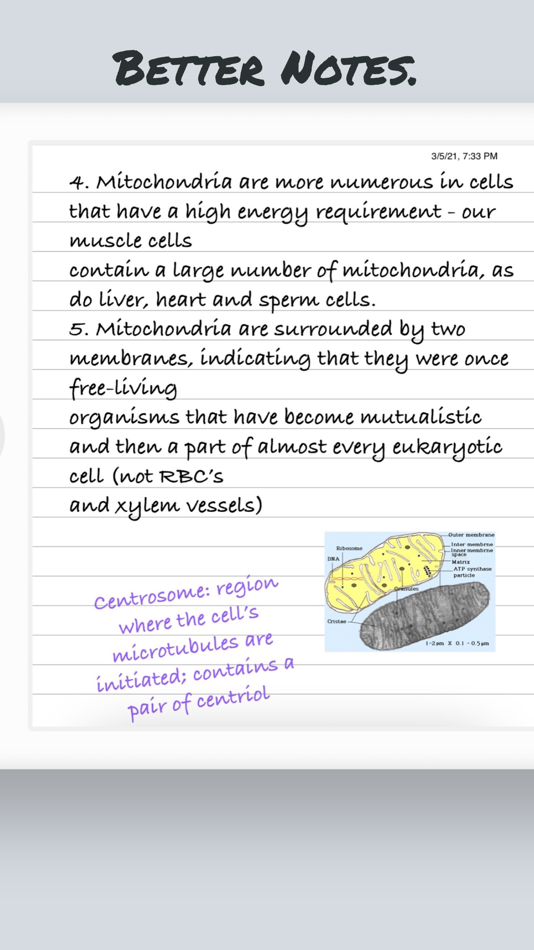 Better Notes.
3/5/21, 7:33 PM
4. Mitochondria are more numerous in cells
that have a high energy requirement - our
muscle cells
contain a large number of mitochondria, as
do liver, heart and sperm cells.
5. Mitochondria are surrounded by two
membranes, indicating that they were once
free-living
organisms that have become mutualistic
and then a part of almost every eukaryotic
cell (not RBC's
and xylem vessels)
Outer membrane
Inter membrne
space
Inner membrne
Matrix
ATP synthase
particle
Ribosome
DNA
Granules
Cristae
1-2 µm X 0.1 - 0.5 µm
Centrosome: region
where the cell's
microtubules are
initiated; contains a
pair of centriol